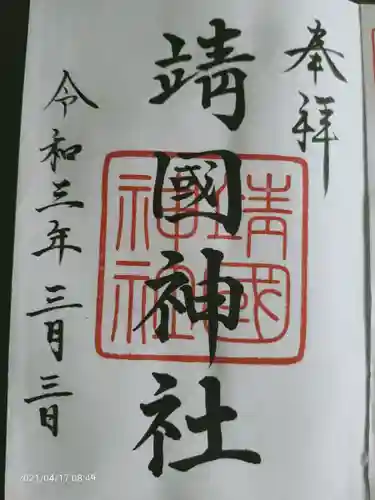 奉拝
靖國神社
靖國
神社
令和三年三月三日
2021/04/17 08:49